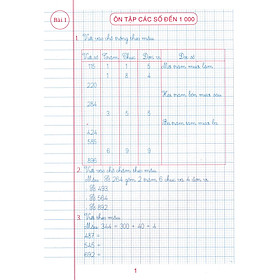 Bài 1
ÔN TẬP CÁC SỐ ĐẾN 1 000
1. Viết vào chỗ trống theo mẫu.
Viết số Trăm Chục Đơn vị Đọc số
115 1 1 5 Một trăm mười lăm
1 8 4
220
Hai trăm bốn mươi sáu
264
3 1 5
Ba trăm tám mươi ba
424
585
6 0 2
896
2. Viết vào chỗ chấm theo mẫu.
Mẫu: Số 264 gồm 2 trăm 6 chục và 4 đơn vị.
Số 493
Số 564
Số 892
3. Viết theo mẫu.
Mẫu: 344 = 300 + 40 + 4
487 =
545 =
692 =
1